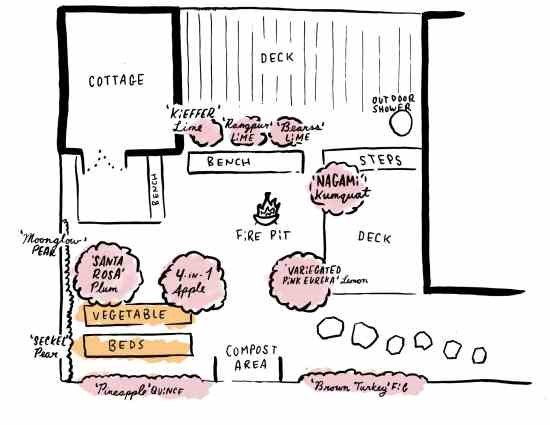 COTTAGE
DECK
OUTDOOR
SHOWER
'KIEFFER'
Lime
'Rangpur'
LIME
'Bearss'
LIME
BENCH
STEPS
BENCH
'NAGAMI'
Kumquat
FIRE PIT
DECK
'Moonglow'
PEAR
'SANTA
ROSA'
Plum
4-IN-1
Apple
'VARIEGATED
PINK EUREKA' Lemon
VEGETABLE
BEDS
'SECKEL'
Pear
COMPOST
AREA
'Pineapple' QUINCE
'Brown Turkey' FIG